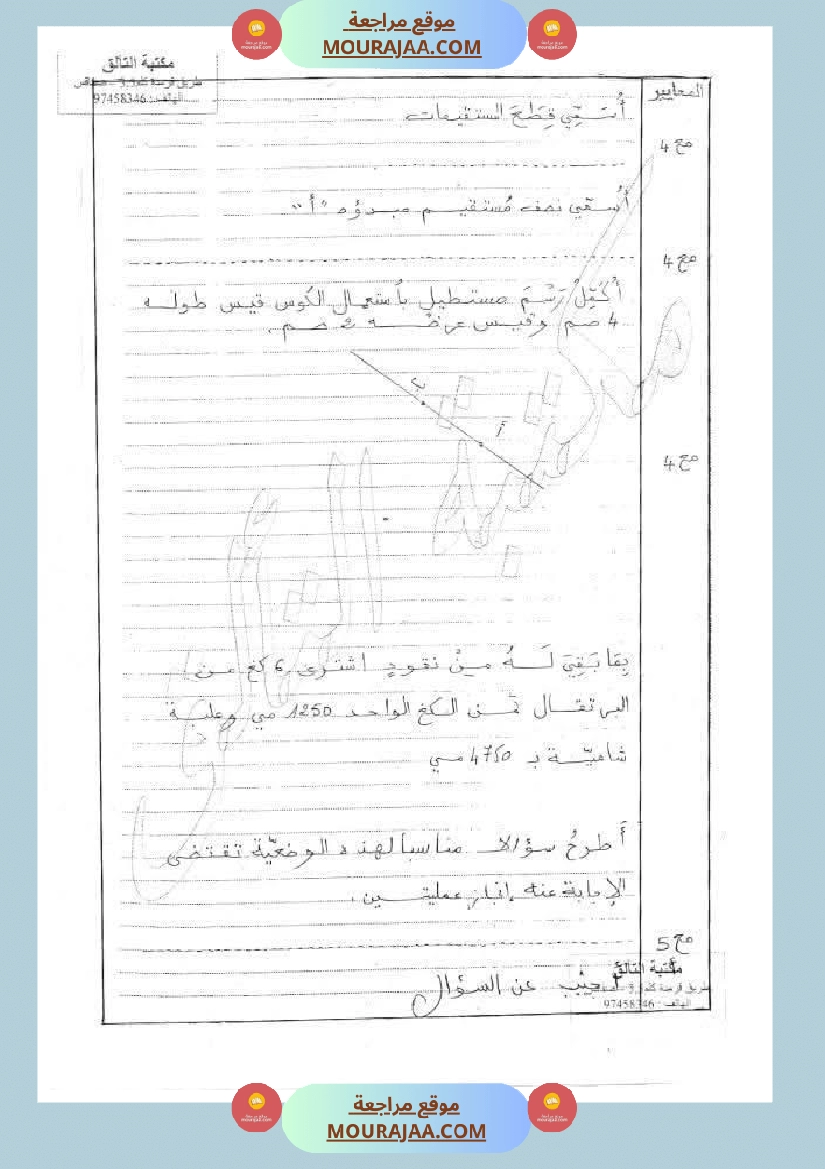 موقع مراجعة
MOURAJAA.COM
مكتبة التألق
الهاتف: 97458346
المعايير
أُسَمِّي قِطَعَ المستقيمات
مع 4
أُسمّي نصف مُستقيم مبدؤه "أ"
مع 4
أُكمِّلُ رَسْمَ مستطيل بأستعمال الكوس قيس طوله
4 صم وقيس عرضه 2 صم.
ب
أ
مع 4
بِمَا بَقِيَ لَهُ مِنْ نقودٍ اشترى 6 كغ من
البرتقال ثمن الكغ الواحد 1250 مي وعلبة
شامية بـ 4750 مي
أَطرحُ سؤالا مناسبا لهذه الوضعيّة تقتضي
الإجابة عنه إنجاز عمليتين.
مع 5
مكتبة التألق
أُجيبُ عن السؤال
الهاتف: 97458346
موقع مراجعة
MOURAJAA.COM